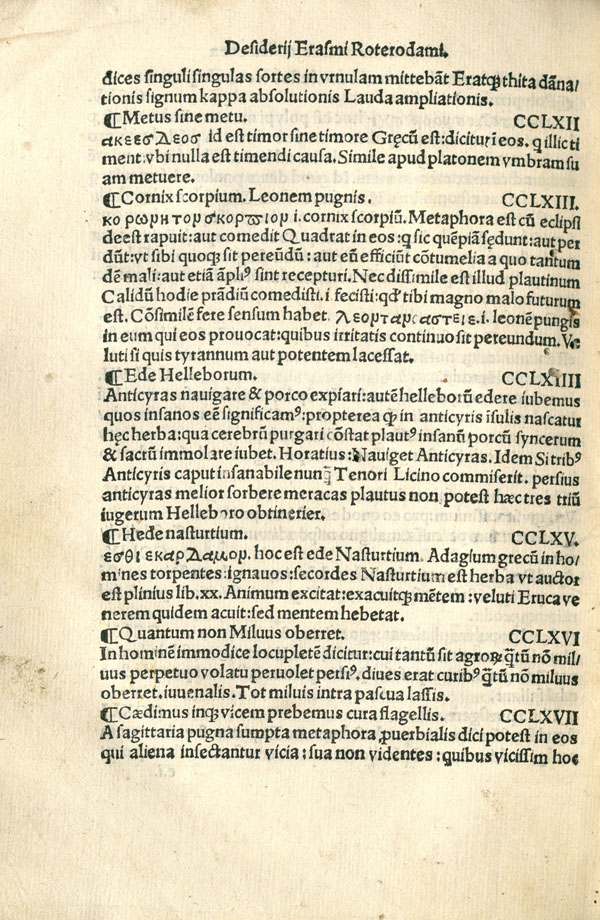 Desiderij Erasmi Roterodami.
dices singuli singulas sortes in vrnulam mittebãt Eratqȝ thita dãna/
tionis signum kappa absolutionis Lauda ampliationis.
¶Metus sine metu. CCLXII
ακεεσ λεοσ id est timor sine timore Gręcũ est: dicitur ĩ eos. q illic ti
ment vbi nulla est timendi causa. Simile apud platonem vmbram su
am metuere.
¶Cornix scorpium. Leonem pugnis. CCLXIII.
κορωμητομ σκορπιομ i. cornix scorpiũ. Metaphora est cũ eclipsi
deest rapuit: aut comedit Quadrat in eos: q sic quẽpiã lędunt: aut per
dũt: vt sibi quoqȝ sit pereũdũ: aut eũ efficiũt cõtumelia a quo tantum
dẽ mali: aut etiã ãplꝰ sint recepturi. Nec dissimile est illud plautinum
Calidũ hodie prãdiũ comedisti. i. fecisti: qđ tibi magno malo futurum
est. Cõsimilẽ fere sensum habet. λεομταμσαστειε. i. leonẽ pungis
in eum qui eos prouocat: quibus irritatis continuo sit pereundum. Ve
luti si quis tyrannum aut potentem lacessat.
¶Ede Helleborum. CCLXIIII
Anticyras nauigare & porco expiari: autẽ helleborũ edere iubemus
quos insanos eẽ significamꝰ: propterea qȝ in anticyris ĩsulis nascatur
hęc herba: qua cerebrũ purgari cõstat plautꝰ insanũ porcũ syncerum
& sacrũ immolare iubet. Horatius: Nauiget Anticyras. Idem Si tribꝰ
Anticyris caput insanabile nunq̃ Tenori Licino commiserit. persius
anticyras melior sorbere meracas plautus non potest hæc tres triũ
iugerum Helleboro obtinerier.
¶Hede nasturtium. CCLXV.
εσθι εκαρδαμομ. hoc est ede Nasturtium. Adagium grecũ in ho/
mines torpentes: ignauos: secordes Nasturtium est herba vt auctor
est plinius lib. xx. Animum excitat: exacuitqȝ mẽtem: veluti Eruca ve
nerem quidem acuit: sed mentem hebetat.
¶Quantum non Miluus oberret. CCLXVI
In hominẽ immodice locupletẽ dicitur: cui tantũ sit agroꝝ q̃tũ nõ mil/
uus perpetuo volatu peruolet persiꝰ. diues erat curibꝰ q̃tũ nõ miluus
oberret. iuuenalis. Tot miluis intra pascua lassis.
¶Cædimus inqȝ vicem prebemus cura flagellis. CCLXVII
A sagittaria pugna sumpta metaphora ꝓuerbialis dici potest in eos
qui aliena insectantur vicia: sua non videntes: quibus vicissim hoc